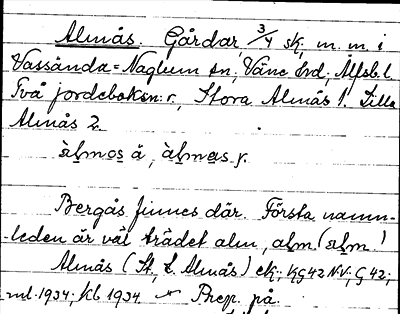 Almås. Gårdar 3/4 sk. m. m. i
Vassända-Naglum sn, Väne hd, Älfsb. l.
Två jordeboksn:r, Stora Almås 1. Lilla
Almås 2.
å, y.
Bergås finnes där. Första namn-
leden är väl trädet alm,
Almås (St., L. Almås) ek.; KG42 NV; G42;
ml. 1934; kl 1934 Prep. på.